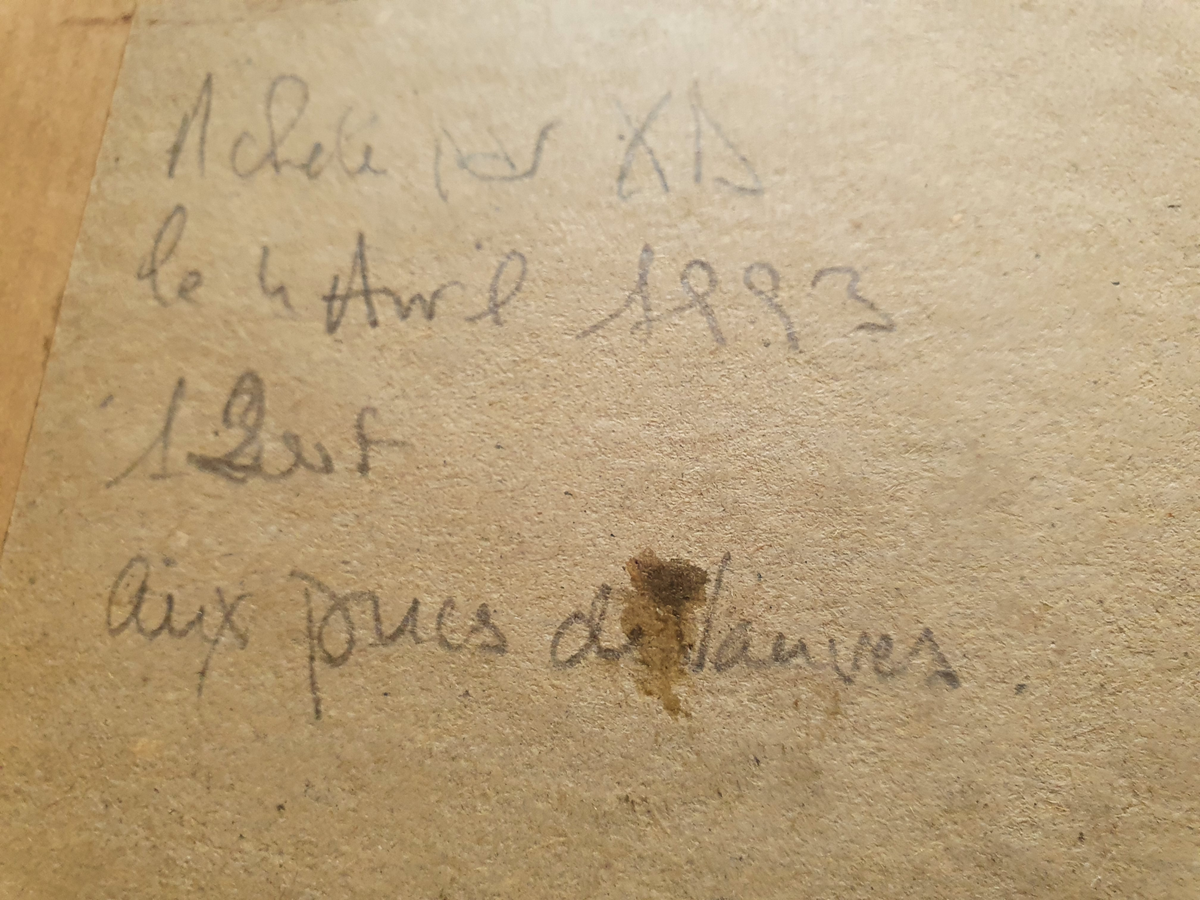 Acheté par XD
le 4 Avril 1993
1200f
aux puces de Vanves.